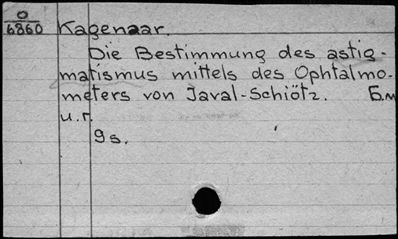 O
6860
Kagenaar.
Die Bestimmung des astig-
matismus mittels des Ophtalmo-
meters von Javal-Schiötz. Б.м
и.г.
9s.